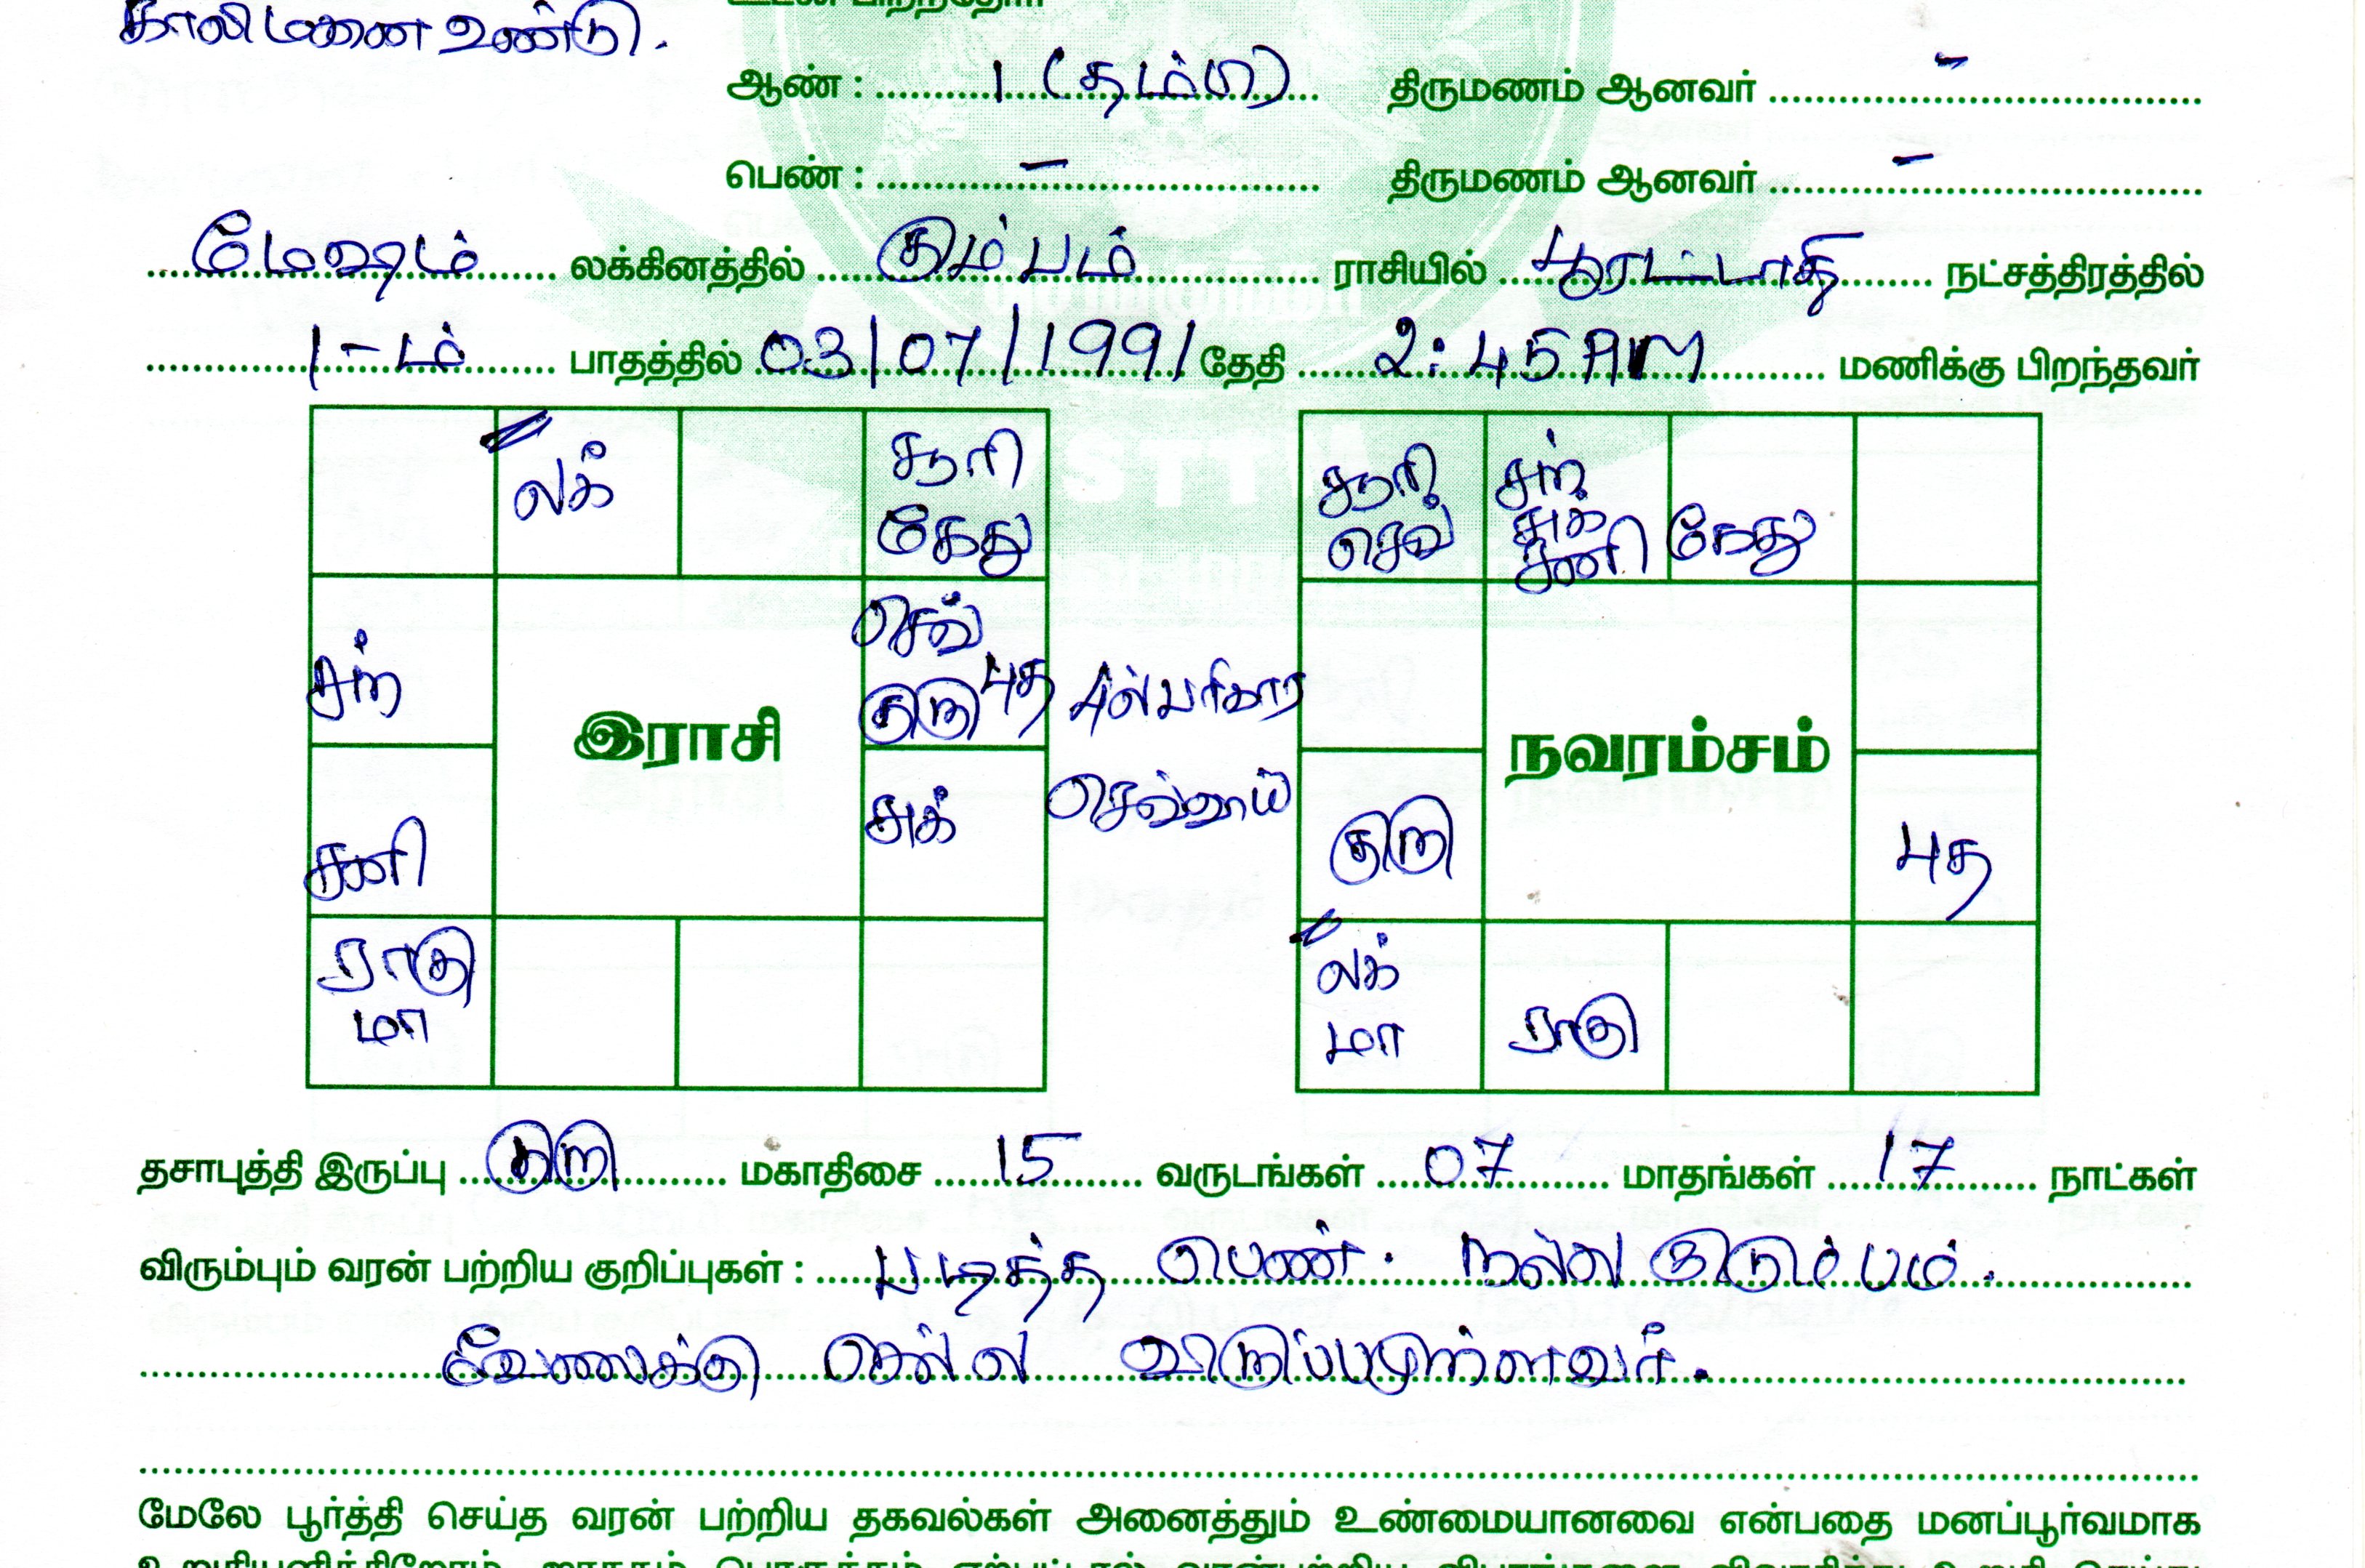 காலிமனை உண்டு.
உடன் பிறந்தோர்
ஆண் : 1 (தம்பி) திருமணம் ஆனவர் -
பெண் : - திருமணம் ஆனவர் -
மேஷம் லக்கினத்தில் கும்பம் ராசியில் பூரட்டாதி நட்சத்திரத்தில்
1-ம் பாதத்தில் 03/07/1991 தேதி 2:45 AM மணிக்கு பிறந்தவர்
லக் சூரி கேது
சந்
சனி
ராகு மா
இராசி
செவ் குரு புத
சுக்
பரிகார
செவ்வாய்
சூரி செவ் சந் சுக் சனி கேது
நவரம்சம்
குரு புத
லக் மா ராகு
தசாபுத்தி இருப்பு குரு மகாதிசை 15 வருடங்கள் 07 மாதங்கள் 17 நாட்கள்
விரும்பும் வரன் பற்றிய குறிப்புகள் : படித்த பெண். நல்ல குடும்பம்.
வேலைக்கு செல்ல விருப்பமுள்ளவர்.
மேலே பூர்த்தி செய்த வரன் பற்றிய தகவல்கள் அனைத்தும் உண்மையானவை என்பதை மனப்பூர்வமாக